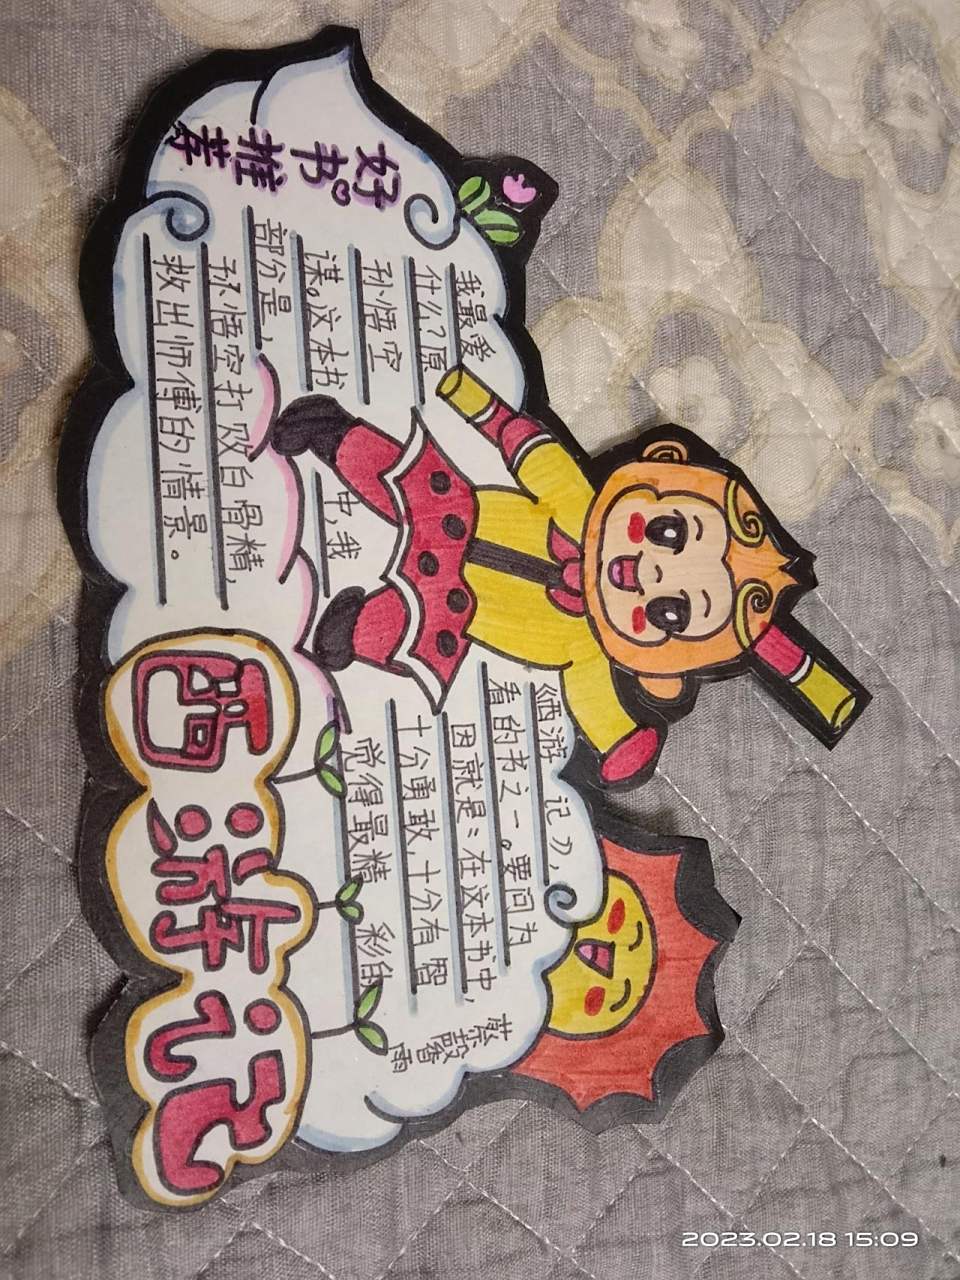 好书推荐
《西游记》,
我最爱看的书之一。要问为
什么?原因就是:在这本书中,
孙悟空十分勇敢,十分有智
谋。这本书中,我觉得最精彩的
部分是,
孙悟空打败白骨精,
救出师傅的情景。
蔡馨雨
西游记
2023.02.18 15:09